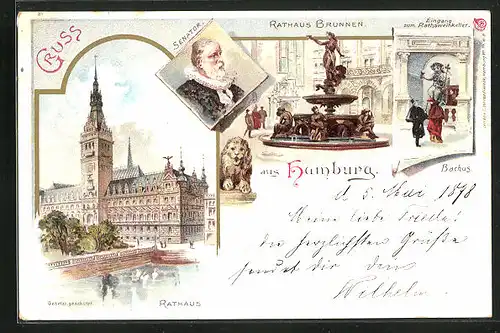 GRUSS
SENATOR.
RATHAUS BRUNNEN.
Eingang
zum Rathsweinkeller.
aus Hamburg.
Bachus.
d 5. Mai 1898
Meine liebe Frieda!
die herzlichsten Grüße
sendet dir dein
Wilhelm.
Gesetzl. geschützt.
RATHAUS